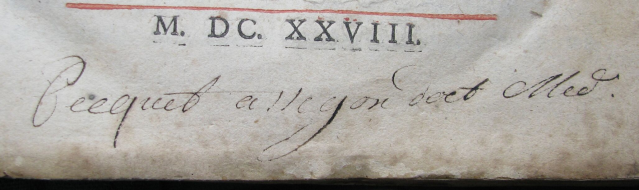 M. DC. XXVIII.
Pecquet doct Med.